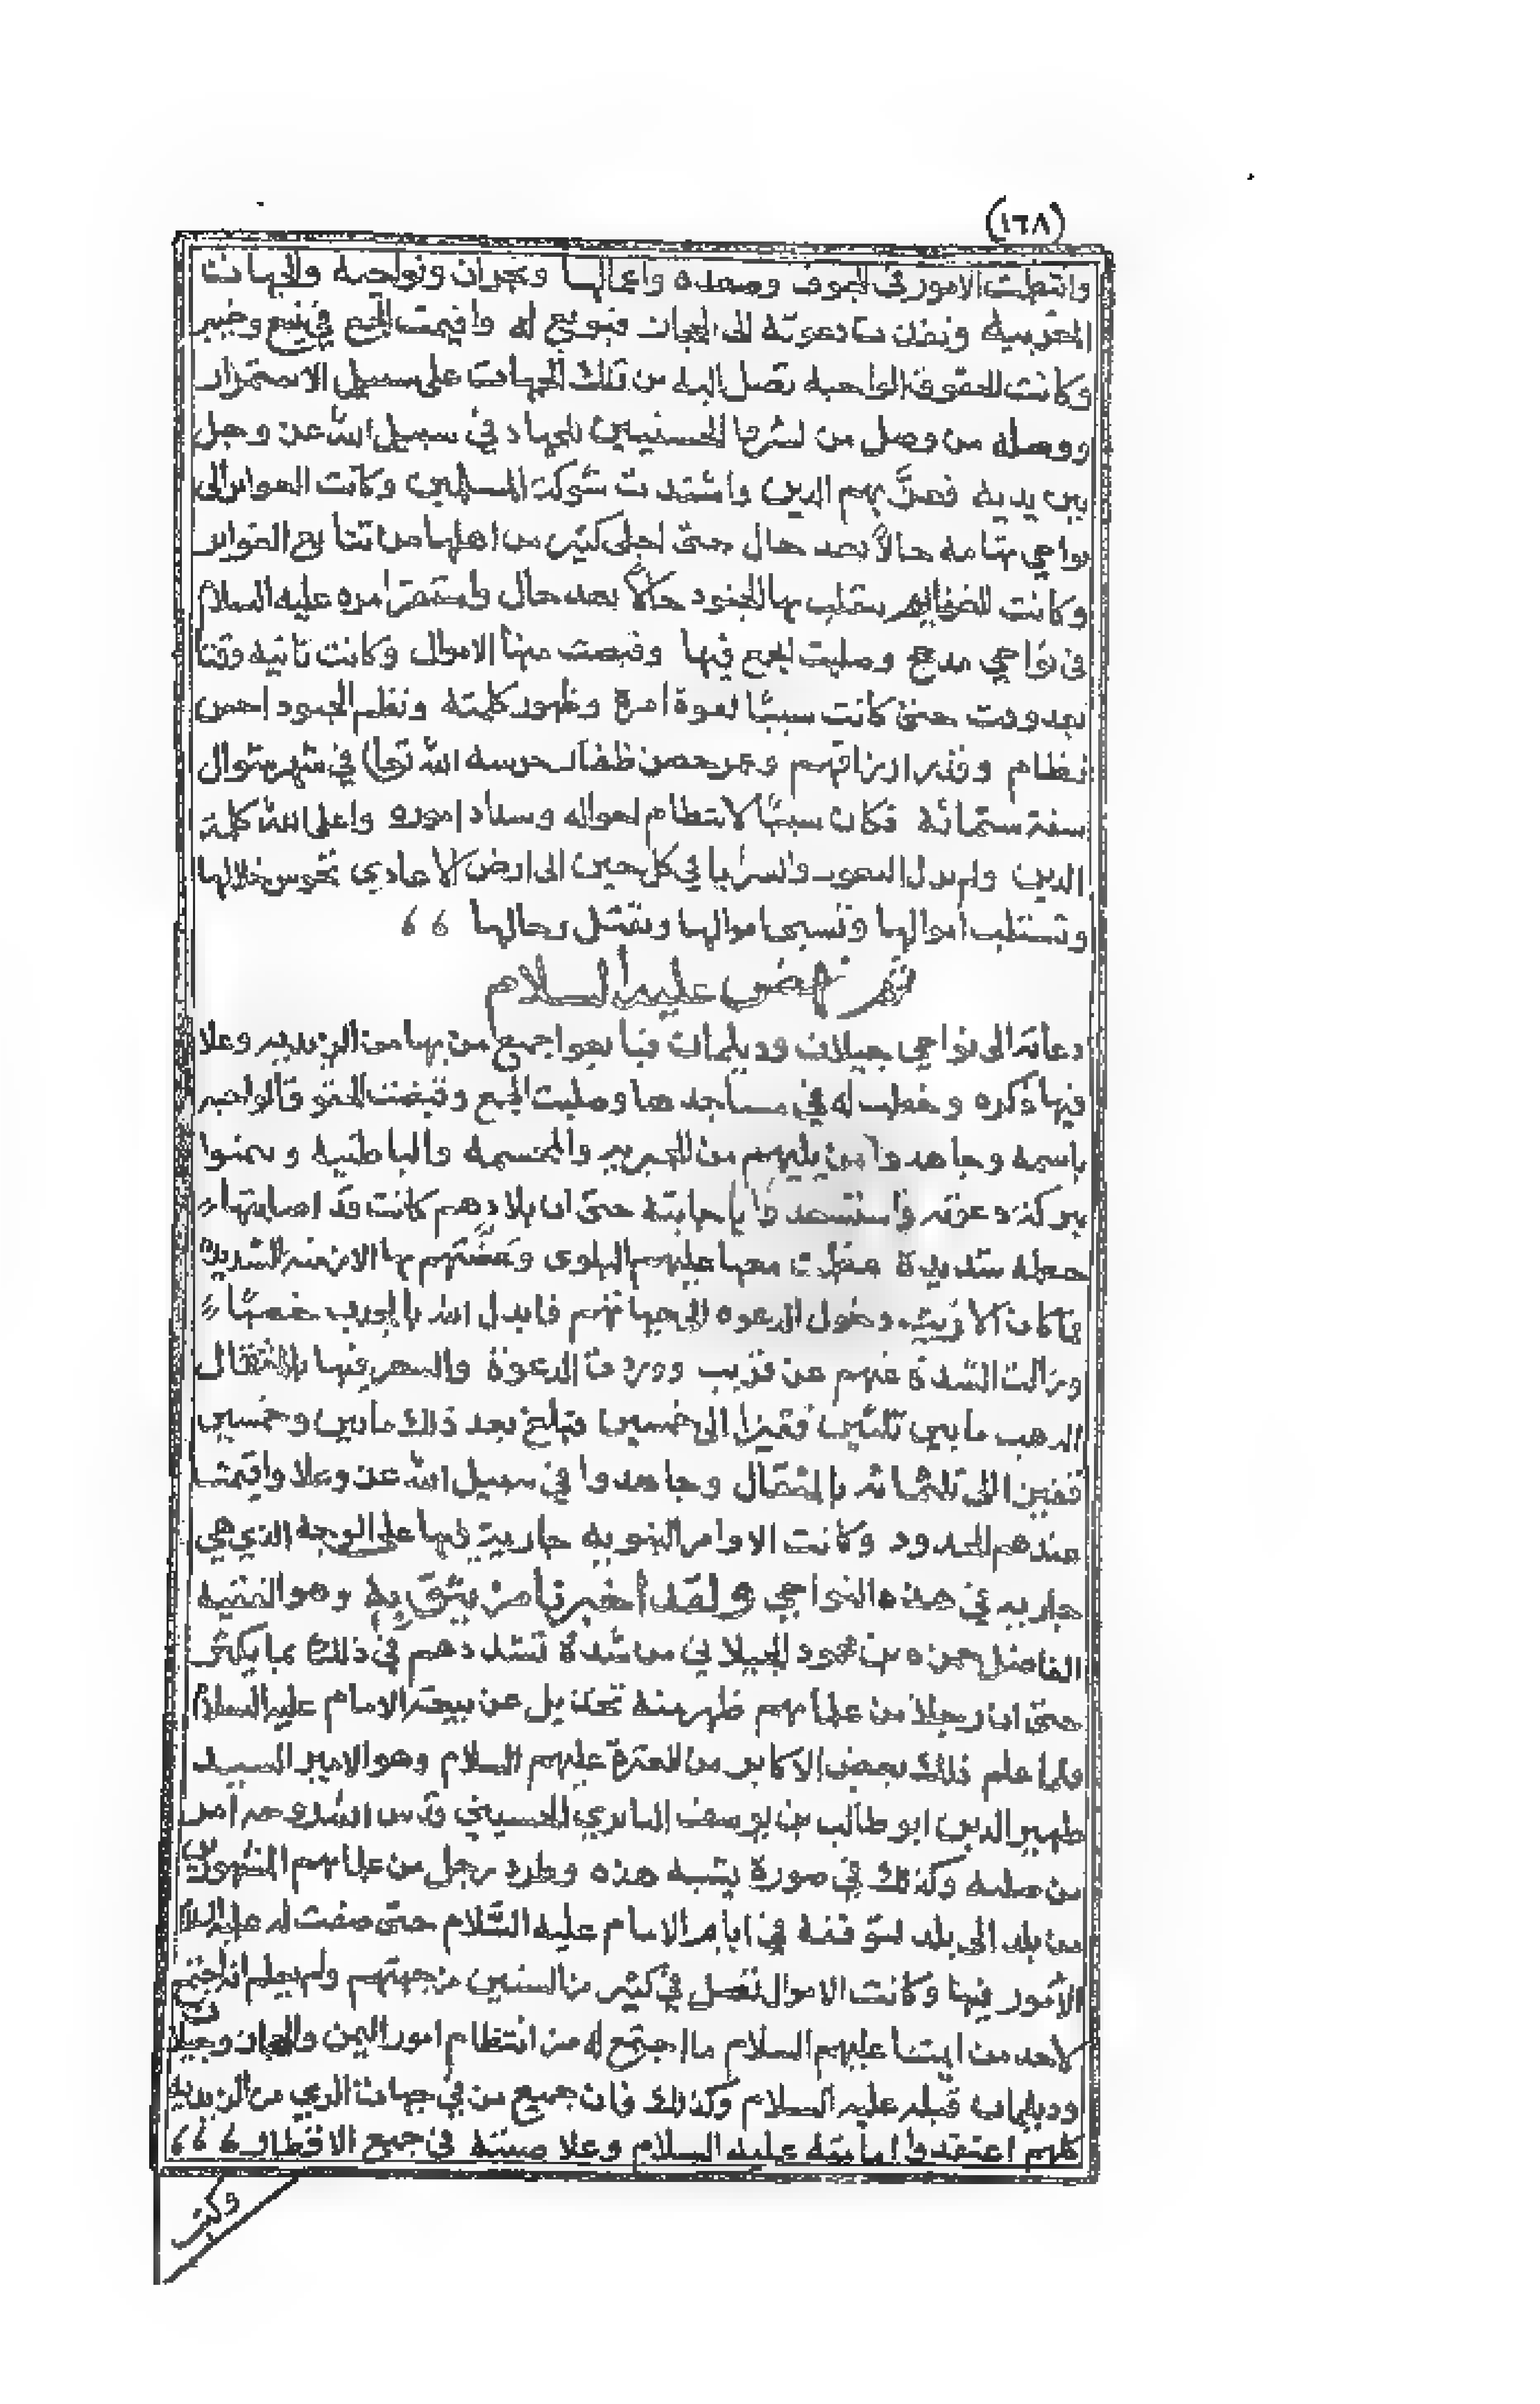 (١٦٨)
وانتظمت الامور في الجوف وصعده واعمالها ونجران ونواحيه والجهات
المغربية ونفذت دعوته الى الحجاز فبويع له واقيمت الجمع في ينبع وخيبر
وكانت الحقوق الواجبه تصل اليه من تلك الجهات على سبيل الاستمرار
ووصله من وصل من لشرفا الحسنيين للجهاد في سبيل الله عز وجل
بين يديه فعزَّ بهم الدين واشتدت شوكة المسلمين وكانت الغوائر الى
نواحي تهامة حالاً بعد حال حتى اجلى كثير من اهلها من تتابع الغوائر
وكانت الغنائم يتقلب بها الجنود حالاً بعد حال واستقر امره عليه السلام
في نواحي مدحج وصليت الجمع فيها وقبضت منها الاموال وكانت تاتيه وقتا
بعد وقت حتى كانت سببًا لقوة امره وظهور كلمته ونظم الجنود احسن
نظام وقرر ارزاقهم وعمر حصن ظفار حرسه الله تعالى في شهر شوال
سنة ستمائة فكان سببًا لانتظام احواله وسداد اموره واعلى الله كلمة
الدين ولم تزل البعوث والسرايا في كل حين الى ارض الاعادي تجوس خلالها
وتستلب اموالها وتسبى اموالها وتقتل رجالها
ثم نهض عليه السلام
دعاته الى نواحي جيلان وديلمان فبايعوا جميع من بها من الزيديه وعلا
فيها ذكره وخطب له في مساجدها وصليت الجمع وقبضت الحقوق الواجبه
باسمه وجاهدوا من يليهم من الجبريه والمجسمه والباطنيه وتيمنوا
ببركة دعوته واستسعدوا باجابته حتى ان بلادهم كانت قد اصابتها
حطمه شديدة عظمت معها عليهم البلوى وعضَّتهم بها الازمنه الشديدة
فما كان الا ريث دخول الدعوه الى جهاتهم فابدل الله بالجدب خصبًا
وزالت الشدة عنهم عن قريب ووردت الدعوة والسعر فيها بالمثقال
الذهب ما بين ثلثين قفيزا الى خمسين فبلغ بعد ذلك مايتين وخمسين
قفيزا الى ثلثمائه بالمثقال وجاهدوا في سبيل الله عز وعلا واقيمت
عندهم الحدود وكانت الاوامر النبويه جارية فيها على الوجه الذي هي
جاريه في هذه النواحي ولقد اخبرنا من يثق به وهو الفقيه
الفاضل حمزه بن محمود الجيلاني من شدة تشددهم في ذلك بما يكثر
حتى ان رجلا من علمائهم ظهر منه تخذيل عن بيعة الامام عليه السلام
ولما علم ذلك بعض الاكابر من العترة عليهم السلام وهو الامير السيد
ظهير الدين ابو طالب بن يوسف الناصري الحسيني قدس الله روحه امر
من صلبه وكذلك في صورة يشبه هذه وطرد رجل من علمائهم المشهورين
من بلد الى بلد لتوقفه في ايام الامام عليه السَّلام حتى صفت له عليه السلام
الأمور فيها وكانت الاموال تصل في كثير من السنين من جهتهم ولم يعلم انه اجتمع
لاحد من ايمتنا عليهم السلام ما اجتمع له من انتظام امور اليمن والحجاز وجيلان
وديلمان قبله عليه السلام وكذلك فان جميع من في جهات الري من الزيديه
كلهم اعتقدوا امامته عليه السلام وعلا صيته في جميع الاقطار
وكتب